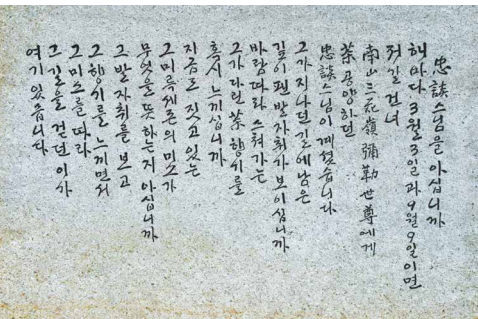 忠談스님을 아십니까
해마다 3월3일과 9월9일이면
저갈 건너
南山三花嶺 彌勒世尊에게
茶공양하던
忠談스님이 계셨습니다
그가 지나던 길에 남은
깊이 팬 발자취가 보이십니까
바람따라 스쳐가는
그가 다린 茶향기를
혹시 느끼십니까
지금도 짓고 있는
그 미륵세존의 미소가
무엇을 뜻하는지 아십니까
그 발자취를 보고
그 향기를 느끼면서
그 미소를 따라
그 길을 걷던 이가
여기 있습니다